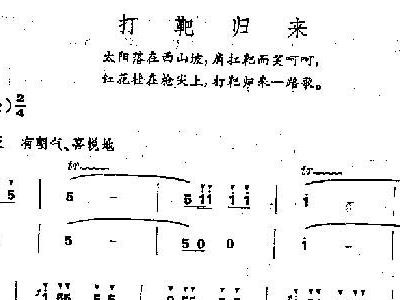 打靶归来
太阳落在西山坡，肩扛靶而笑呵呵，
红花挂在枪尖上，打靶归来一路歌。
) 2/4
有朝气、喜悦地
tr tr
5 | 5 - | 5 1 1 1 1 | 1
5 - | 5 0 0 | 1 -